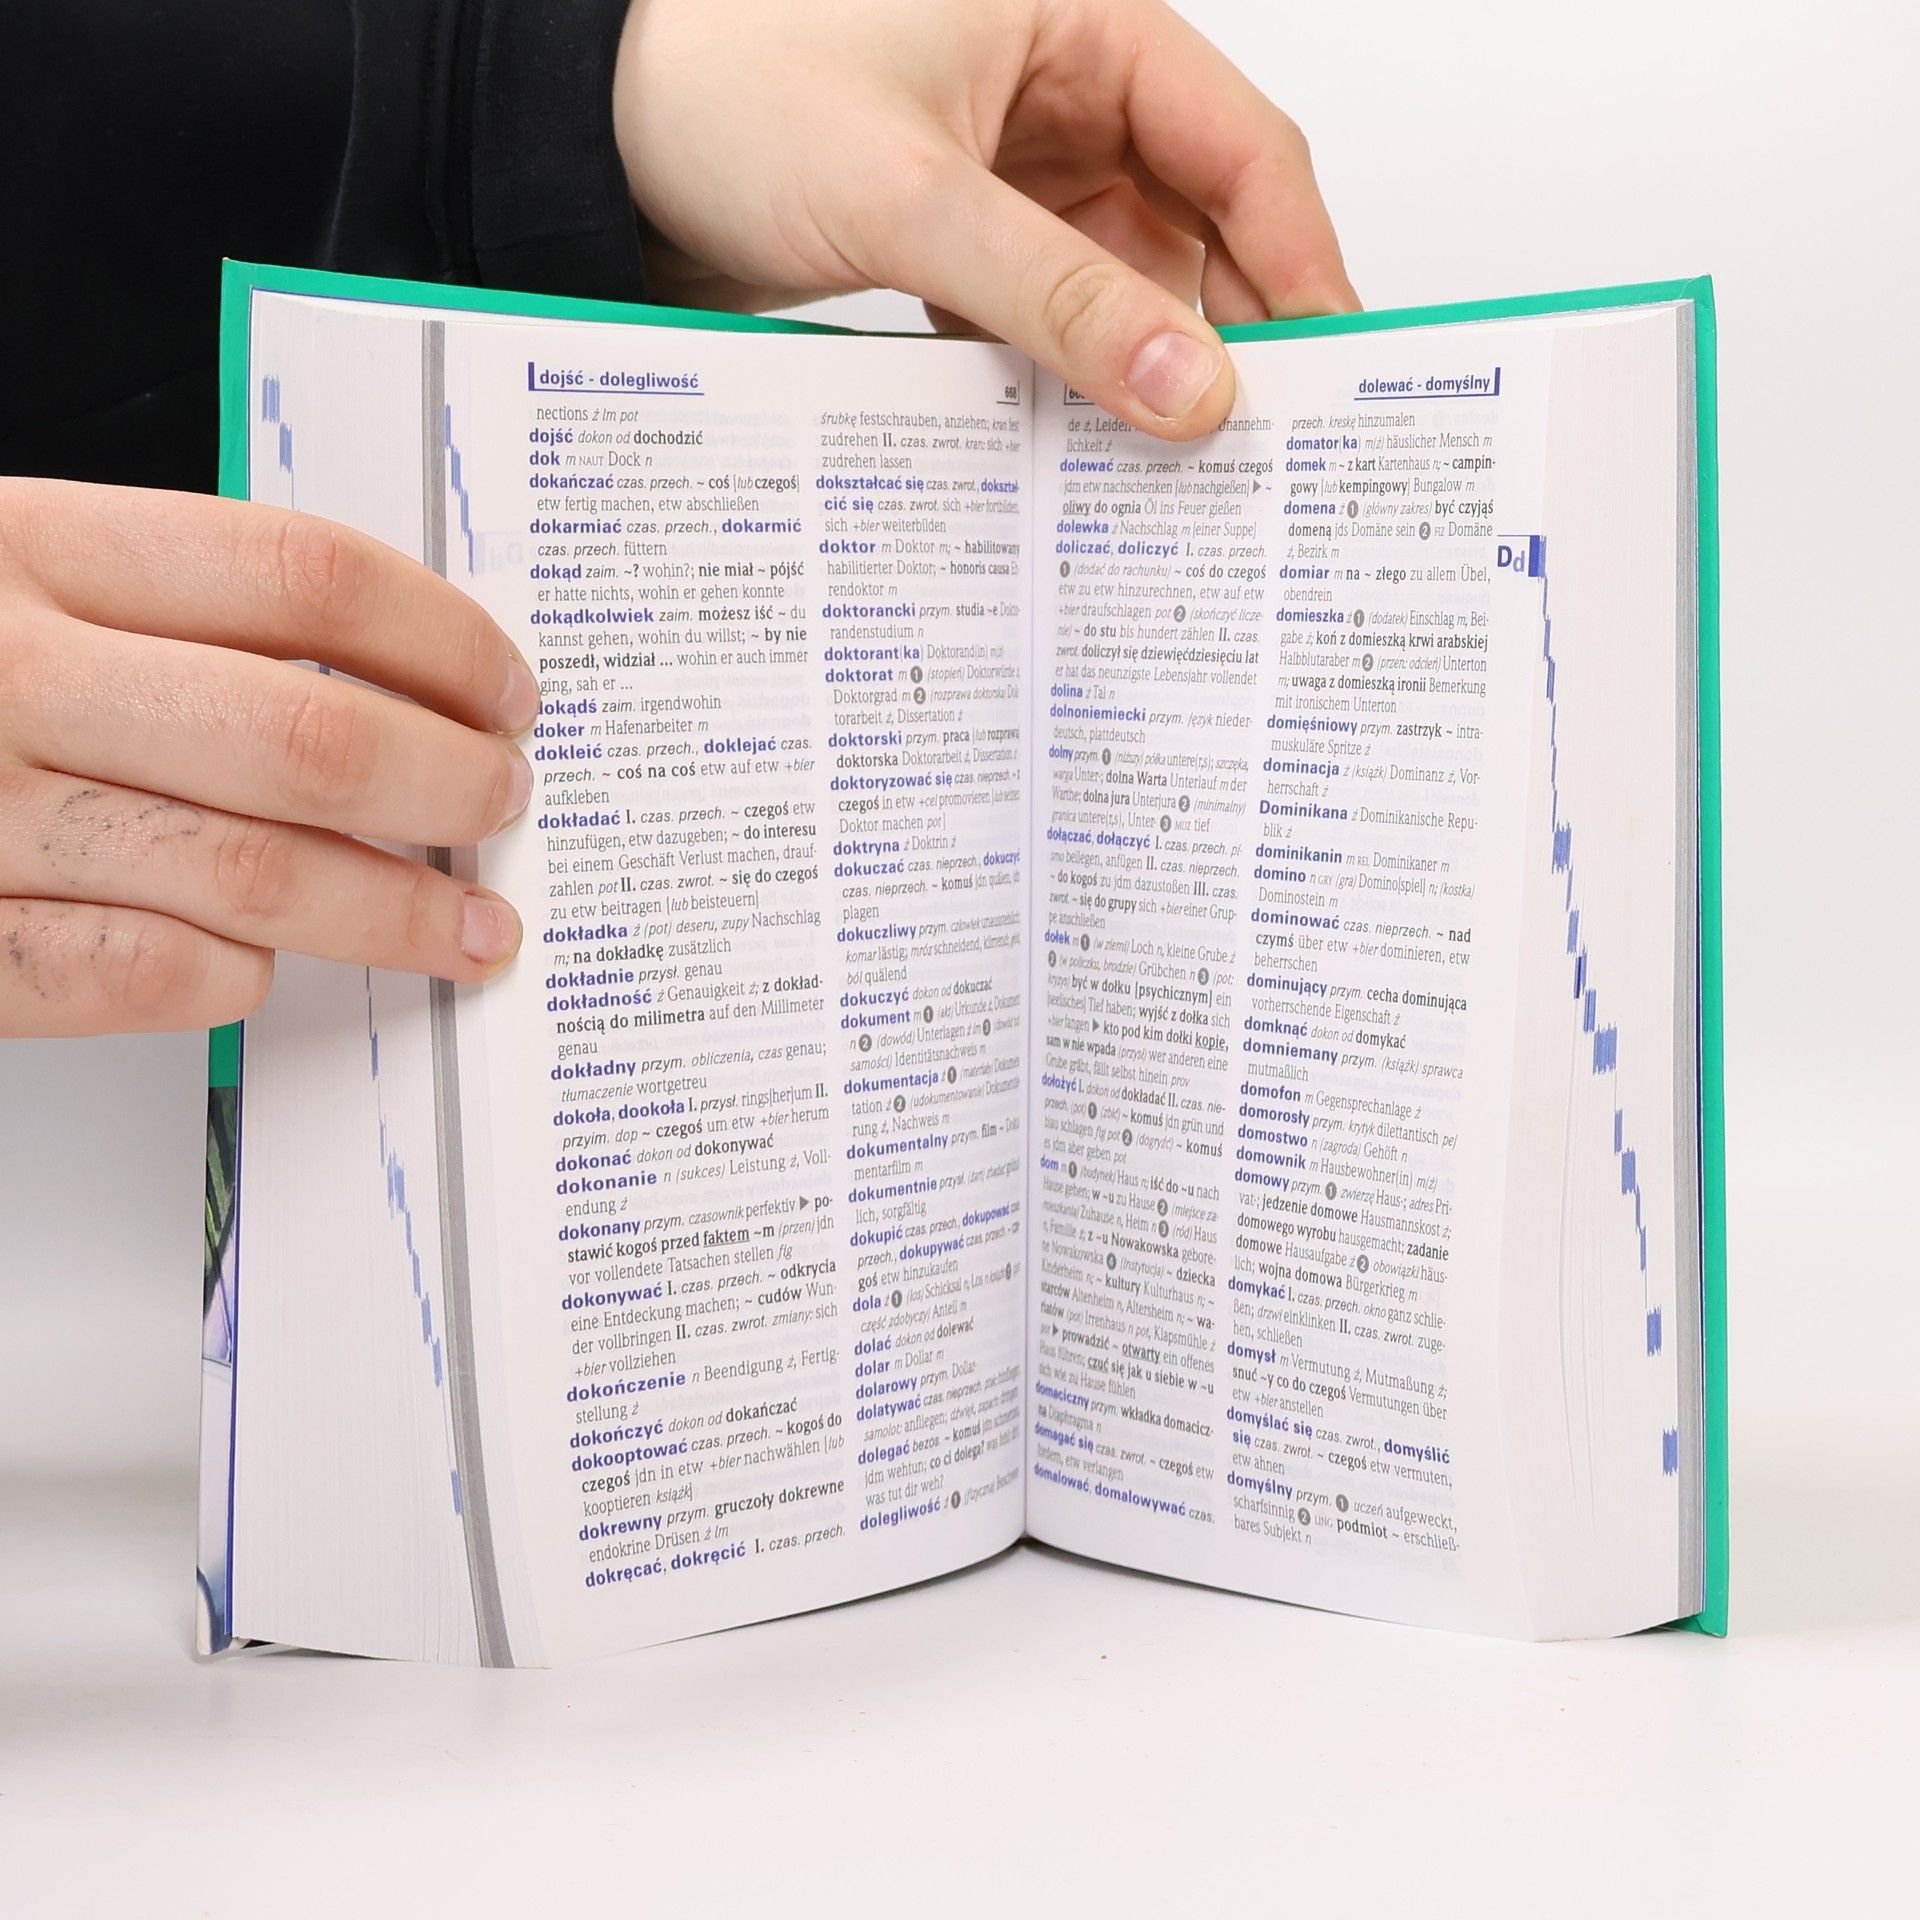 dojść - dolegliwość
668
nections ż lm pot
dojść dokon od dochodzić
dok m NAUT Dock n
dokańczać czas. przech. ~ coś [lub czegoś]
etw fertig machen, etw abschließen
dokarmiać czas. przech., dokarmić
czas. przech. füttern
dokąd zaim. ~? wohin?; nie miał ~ pójść
er hatte nichts, wohin er gehen konnte
dokądkolwiek zaim. możesz iść ~ du
kannst gehen, wohin du willst; ~ by nie
poszedł, widział ... wohin er auch immer
ging, sah er ...
dokądś zaim. irgendwohin
doker m Hafenarbeiter m
dokleić czas. przech., doklejać czas.
przech. ~ coś na coś etw auf etw +bier
aufkleben
dokładać I. czas. przech. ~ czegoś etw
hinzufügen, etw dazugeben; ~ do interesu
bei einem Geschäft Verlust machen, drauf-
zahlen pot II. czas. zwrot. ~ się do czegoś
zu etw beitragen [lub beisteuern]
dokładka ż (pot) deseru, zupy Nachschlag
m; na dokładkę zusätzlich
dokładnie przysł. genau
dokładność ż Genauigkeit ż; z dokład-
nością do milimetra auf den Millimeter
genau
dokładny przym. obliczenia, czas genau;
tłumaczenie wortgetreu
dokoła, dookoła I. przysł. rings[her]um II.
przyim. dop ~ czegoś um etw +bier herum
dokonać dokon od dokonywać
dokonanie n (sukces) Leistung ż, Voll-
endung ż
dokonany przym. czasownik perfektiv ▶ po-
stawić kogoś przed faktem ~m (przen) jdn
vor vollendete Tatsachen stellen fig
dokonywać I. czas. przech. ~ odkrycia
eine Entdeckung machen; ~ cudów Wun-
der vollbringen II. czas. zwrot. zmiany: sich
+bier vollziehen
dokończenie n Beendigung ż, Fertig-
stellung ż
dokończyć dokon od dokańczać
dokooptować czas. przech. ~ kogoś do
czegoś jdn in etw +bier nachwählen [lub
kooptieren książk]
dokrewny przym. gruczoły dokrewne
endokrine Drüsen ż lm
dokręcać, dokręcić I. czas. przech.
śrubkę festschrauben, anziehen; kran fest
zudrehen II. czas. zwrot. kran: sich +bier
zudrehen lassen
dokształcać się czas. zwrot., dokształ-
cić się czas. zwrot. sich +bier fortbilden,
sich +bier weiterbilden
doktor m Doktor m; ~ habilitowany
habilitierter Doktor; ~ honoris causa Eh
rendoktor m
doktorancki przym. studia ~e Dokto-
randenstudium n
doktorant(ka) Doktorand(in) m(ż)
doktorat m ❶ (stopień) Doktorwürde ż
Doktorgrad m ❷ (rozprawa doktorska) Dok
torarbeit ż, Dissertation ż
doktorski przym. praca [lub rozprawa
doktorska Doktorarbeit ż, Dissertation ż
doktoryzować się czas. nieprzech. ~ z
czegoś in etw +cel promovieren [lub seinen
Doktor machen pot]
doktryna ż Doktrin ż
dokuczać czas. nieprzech., dokuczyć
czas. nieprzech. ~ komuś jdn quälen, jdn
plagen
dokuczliwy przym. człowiek unausstehlich
komar lästig; mróz schneidend, klirrend;
ból quälend
dokuczyć dokon od dokuczać
dokument m ❶ (akt) Urkunde ż, Dokument
n ❷ (dowód) Unterlagen ż lm ❸ (dowód to
samości) Identitätsnachweis m
dokumentacja ż ❶ (materiały) Dokumen
tation ż ❷ (udokumentowanie) Dokumentie
rung ż, Nachweis m
dokumentalny przym. film ~ Doku
mentarfilm m
dokumentnie przysł. (żart)
lich, sorgfältig
dokupić czas. przech., dokupować czas
przech., dokupywać czas. przech. ~ cze
goś etw hinzukaufen
dola ż ❶ (los) Schicksal n, Los n książk ❷
część zdobyczy) Anteil m
dolać dokon od dolewać
dolar m Dollar m
dolarowy przym. Dollar-
dolatywać czas. nieprzech.
samolot: anfliegen; dźwięk, zapach:
dolegać bezos. ~ komuś jdn schmerzen,
jdm wehtun; co ci dolega?
was tut dir weh?
dolegliwość ż ❶ (fizyczna) Beschwer
dolewać - domyślny
de ż, Leiden Unannehm-
lichkeit ż
dolewać czas. przech. ~ komuś czegoś
jdm etw nachschenken [lub nachgießen] ▶ ~
oliwy do ognia Öl ins Feuer gießen
dolewka ż Nachschlag m [einer Suppe]
doliczać, doliczyć I. czas. przech.
❶ (dodać do rachunku) ~ coś do czegoś
etw zu etw hinzurechnen, etw auf etw
+bier draufschlagen pot ❷ (skończyć licze-
nie) ~ do stu bis hundert zählen II. czas.
zwrot. doliczył się dziewięćdziesięciu lat
er hat das neunzigste Lebensjahr vollendet
dolina ż Tal n
dolnoniemiecki przym. język nieder-
deutsch, plattdeutsch
dolny przym. ❶ (niższy) półka untere(r,s); szczęka,
warga Unter-; dolna Warta Unterlauf m der
Warthe; dolna jura Unterjura ❷ (minimalny)
granica untere(r,s), Unter- ❸ MUZ tief
dołączać, dołączyć I. czas. przech. pi-
smo beilegen, anfügen II. czas. nieprzech.
~ do kogoś zu jdm dazustoßen III. czas.
zwrot. ~ się do grupy sich +bier einer Grup-
pe anschließen
dołek m ❶ (w ziemi) Loch n, kleine Grube ż
❷ (w policzku, brodzie) Grübchen n ❸ (pot:
kryzys) być w dołku [psychicznym] ein
[seelisches] Tief haben; wyjść z dołka sich
+bier fangen ▶ kto pod kim dołki kopie,
sam w nie wpada (przysł) wer anderen eine
Grube gräbt, fällt selbst hinein prov
dołożyć I. dokon od dokładać II. czas. nie-
przech. (pot) ❶ (zbić) ~ komuś jdn grün und
blau schlagen fig pot ❷ (dogryźć) ~ komuś
es jdm aber geben pot
dom m ❶ (budynek) Haus n; iść do ~u nach
Hause gehen; w ~u zu Hause ❷ (miejsce za-
mieszkania) Zuhause n, Heim n ❸ (ród) Haus
n, Familie ż; z ~u Nowakowska gebore-
ne Nowakowska ❹ (instytucja) ~ dziecka
Kinderheim n; ~ kultury Kulturhaus n; ~
starców Altenheim n, Altersheim n; ~ wa-
riatów (pot) Irrenhaus n pot, Klapsmühle ż
pot ▶ prowadzić ~ otwarty ein offenes
Haus führen; czuć się jak u siebie w ~u
sich wie zu Hause fühlen
domaciczny przym. wkładka domacicz-
na Diaphragma n
domagać się czas. zwrot. ~ czegoś etw
fordern, etw verlangen
domalować, domalowywać czas.
przech. kreskę hinzumalen
domator(ka) m(ż) häuslicher Mensch m
domek m ~ z kart Kartenhaus n; ~ campin-
gowy [lub kempingowy] Bungalow m
domena ż ❶ (główny zakres) być czyjąś
domeną jds Domäne sein ❷ FIZ Domäne
ż, Bezirk m
domiar m na ~ złego zu allem Übel,
obendrein
domieszka ż ❶ (dodatek) Einschlag m, Bei-
gabe ż; koń z domieszką krwi arabskiej
Halbblutaraber m ❷ (przen: odcień) Unterton
m; uwaga z domieszką ironii Bemerkung
mit ironischem Unterton
domięśniowy przym. zastrzyk ~ intra-
muskuläre Spritze ż
dominacja ż (książk) Dominanz ż, Vor-
herrschaft ż
Dominikana ż Dominikanische Repu-
blik ż
dominikanin m REL Dominikaner m
domino n GRY (gra) Domino[spiel] n; (kostka)
Dominostein m
dominować czas. nieprzech. ~ nad
czymś über etw +bier dominieren, etw
beherrschen
dominujący przym. cecha dominująca
vorherrschende Eigenschaft ż
domknąć dokon od domykać
domniemany przym. (książk) sprawca
mutmaßlich
domofon m Gegensprechanlage ż
domorosły przym. krytyk dilettantisch pej
domostwo n (zagroda) Gehöft n
domownik m Hausbewohner(in) m(ż)
domowy przym. ❶ zwierzę Haus-; adres Pri-
vat-; jedzenie domowe Hausmannskost ż;
domowego wyrobu hausgemacht; zadanie
domowe Hausaufgabe ż ❷ obowiązki häus-
lich; wojna domowa Bürgerkrieg m
domykać I. czas. przech. okno ganz schlie-
ßen; drzwi einklinken II. czas. zwrot. zuge-
hen, schließen
domysł m Vermutung ż, Mutmaßung ż;
snuć ~y co do czegoś Vermutungen über
etw +bier anstellen
domyślać się czas. zwrot., domyślić
się czas. zwrot. ~ czegoś etw vermuten,
etw ahnen
domyślny przym. ❶ uczeń aufgeweckt,
scharfsinnig ❷ LING podmiot ~ erschließ-
bares Subjekt n
Dd